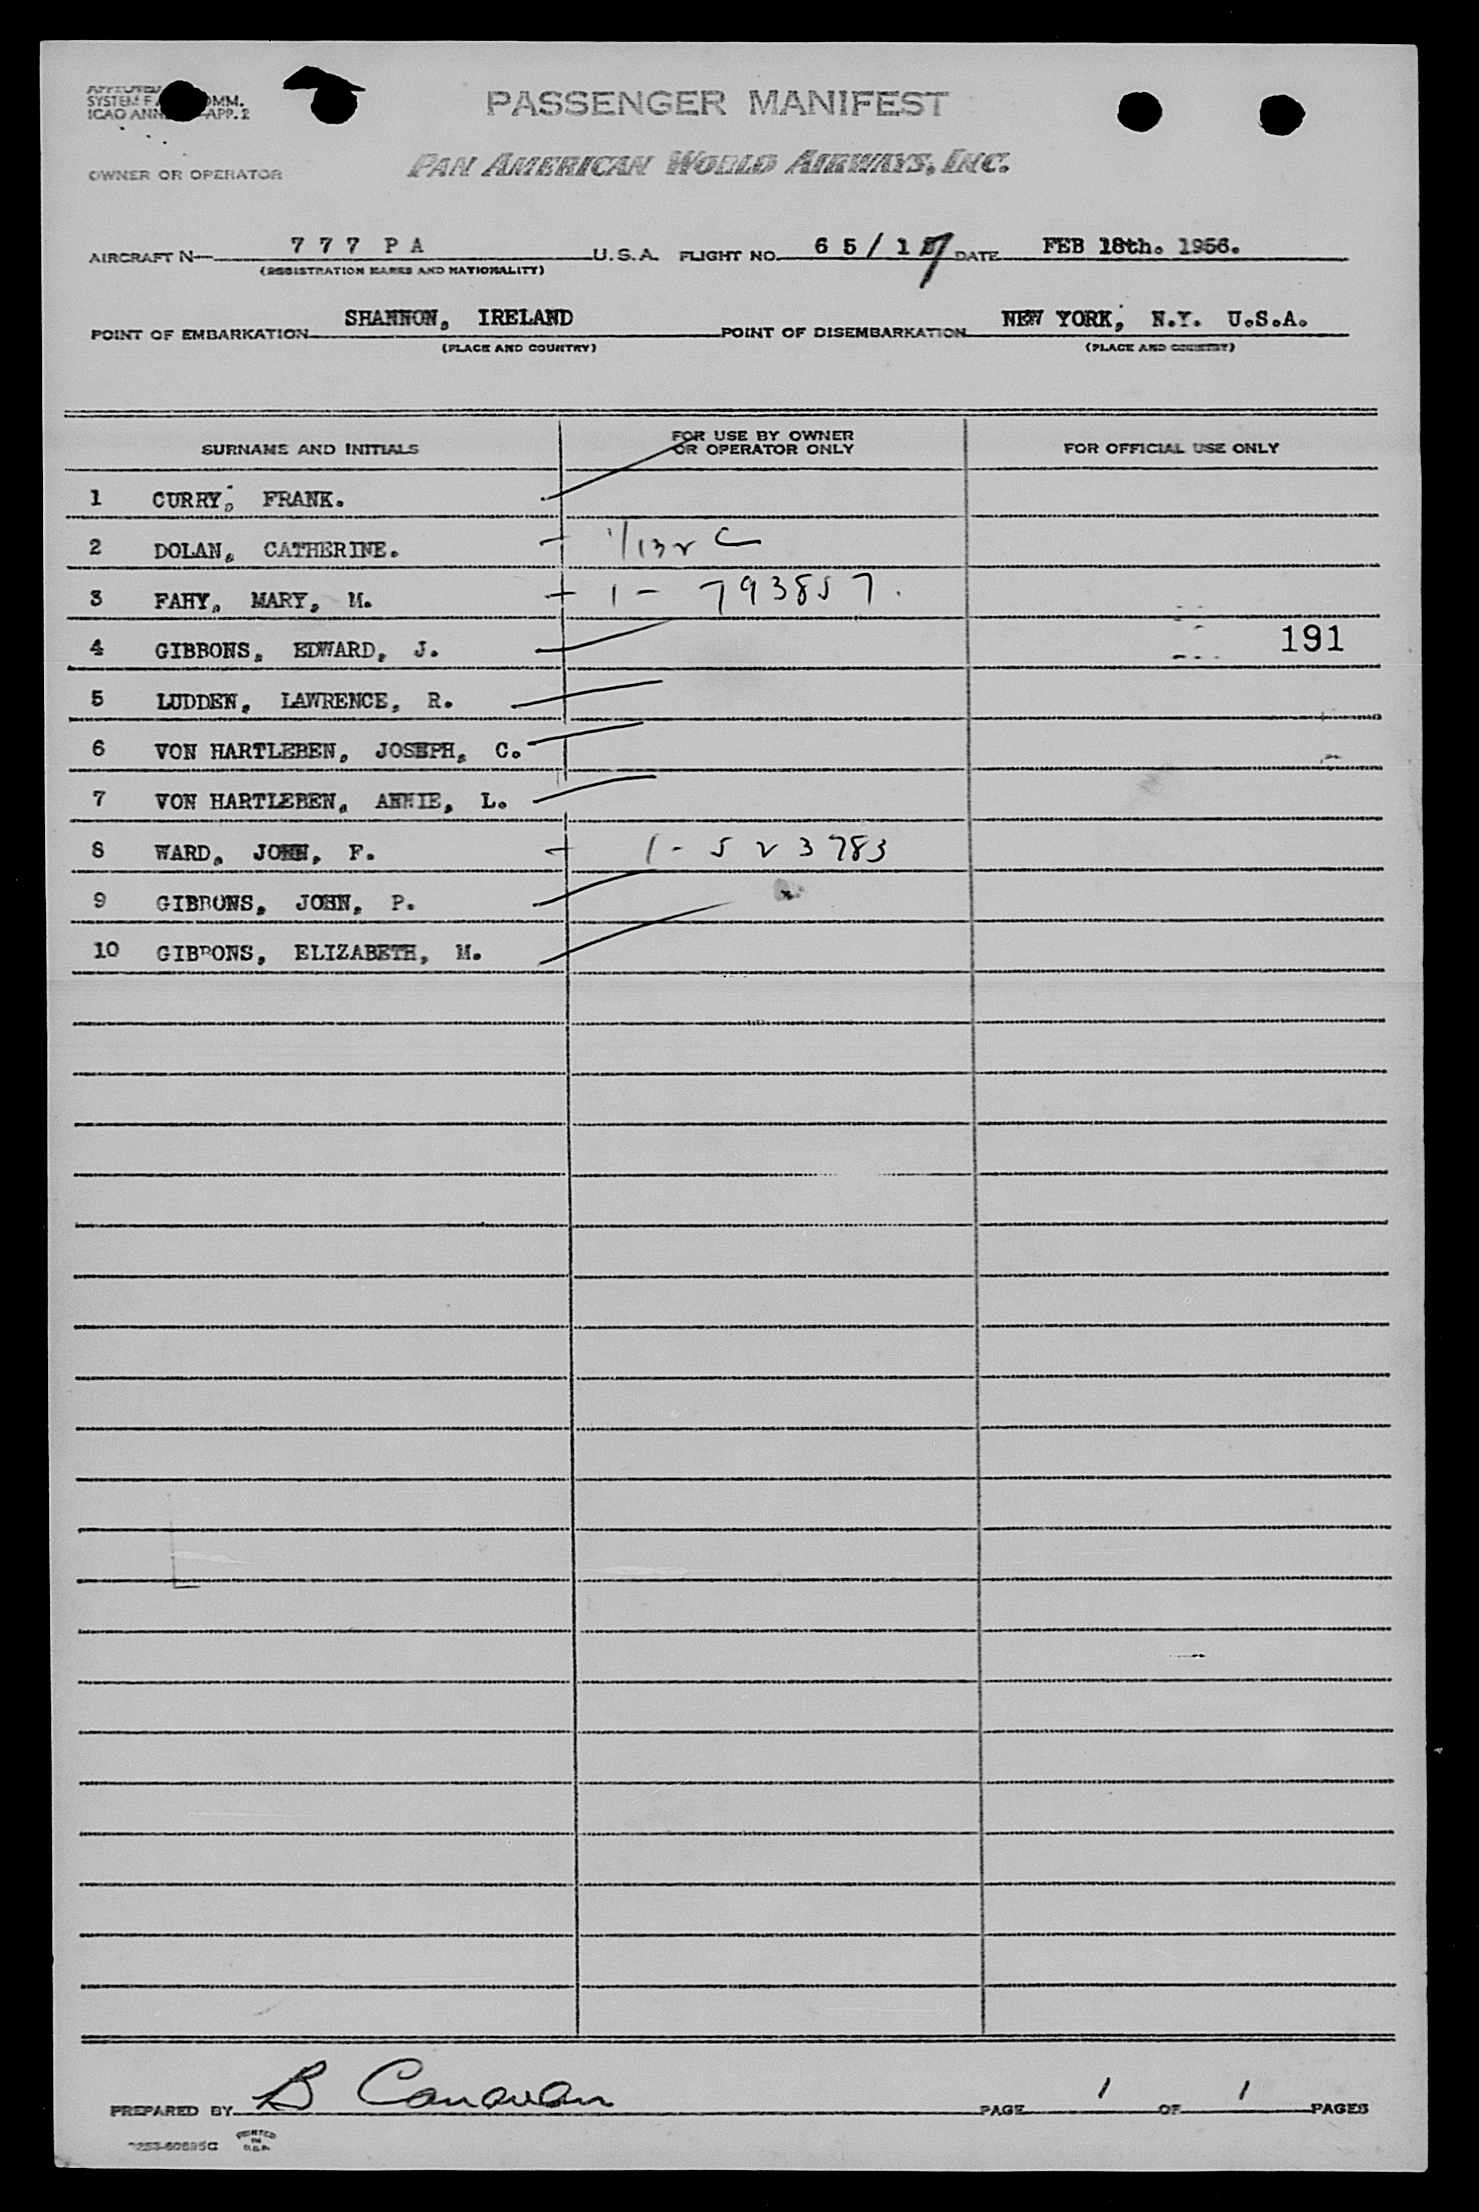 SYSTEM
ICAO APP. 2
PASSENGER MANIFEST
PAN AMERICAN WORLD AIRWAYS, INC.
OWNER OR OPERATOR
AIRCRAFT N— 777 PA U.S.A. FLIGHT NO. 65/17 DATE FEB 18th. 1956.
(REGISTRATION MARKS AND NATIONALITY)
POINT OF EMBARKATION SHANNON, IRELAND POINT OF DISEMBARKATION NEW YORK, N.Y. U.S.A.
(PLACE AND COUNTRY) (PLACE AND COUNTRY)
SURNAME AND INITIALS FOR USE BY OWNER OR OPERATOR ONLY FOR OFFICIAL USE ONLY
1 CURRY, FRANK.
2 DOLAN, CATHERINE.
3 FAHY, MARY, M. 1 - 793857.
4 GIBBONS, EDWARD, J. 191
5 LUDDEN, LAWRENCE, R.
6 VON HARTLEBEN, JOSEPH, C.
7 VON HARTLEBEN, ANNIE, L.
8 WARD, JOHN, F. 1 - 523783
9 GIBBONS, JOHN, P.
10 GIBBONS, ELIZABETH, M.
PREPARED BY B Canavan PAGE 1 OF 1 PAGES
PRINTED
IN
U.S.A.